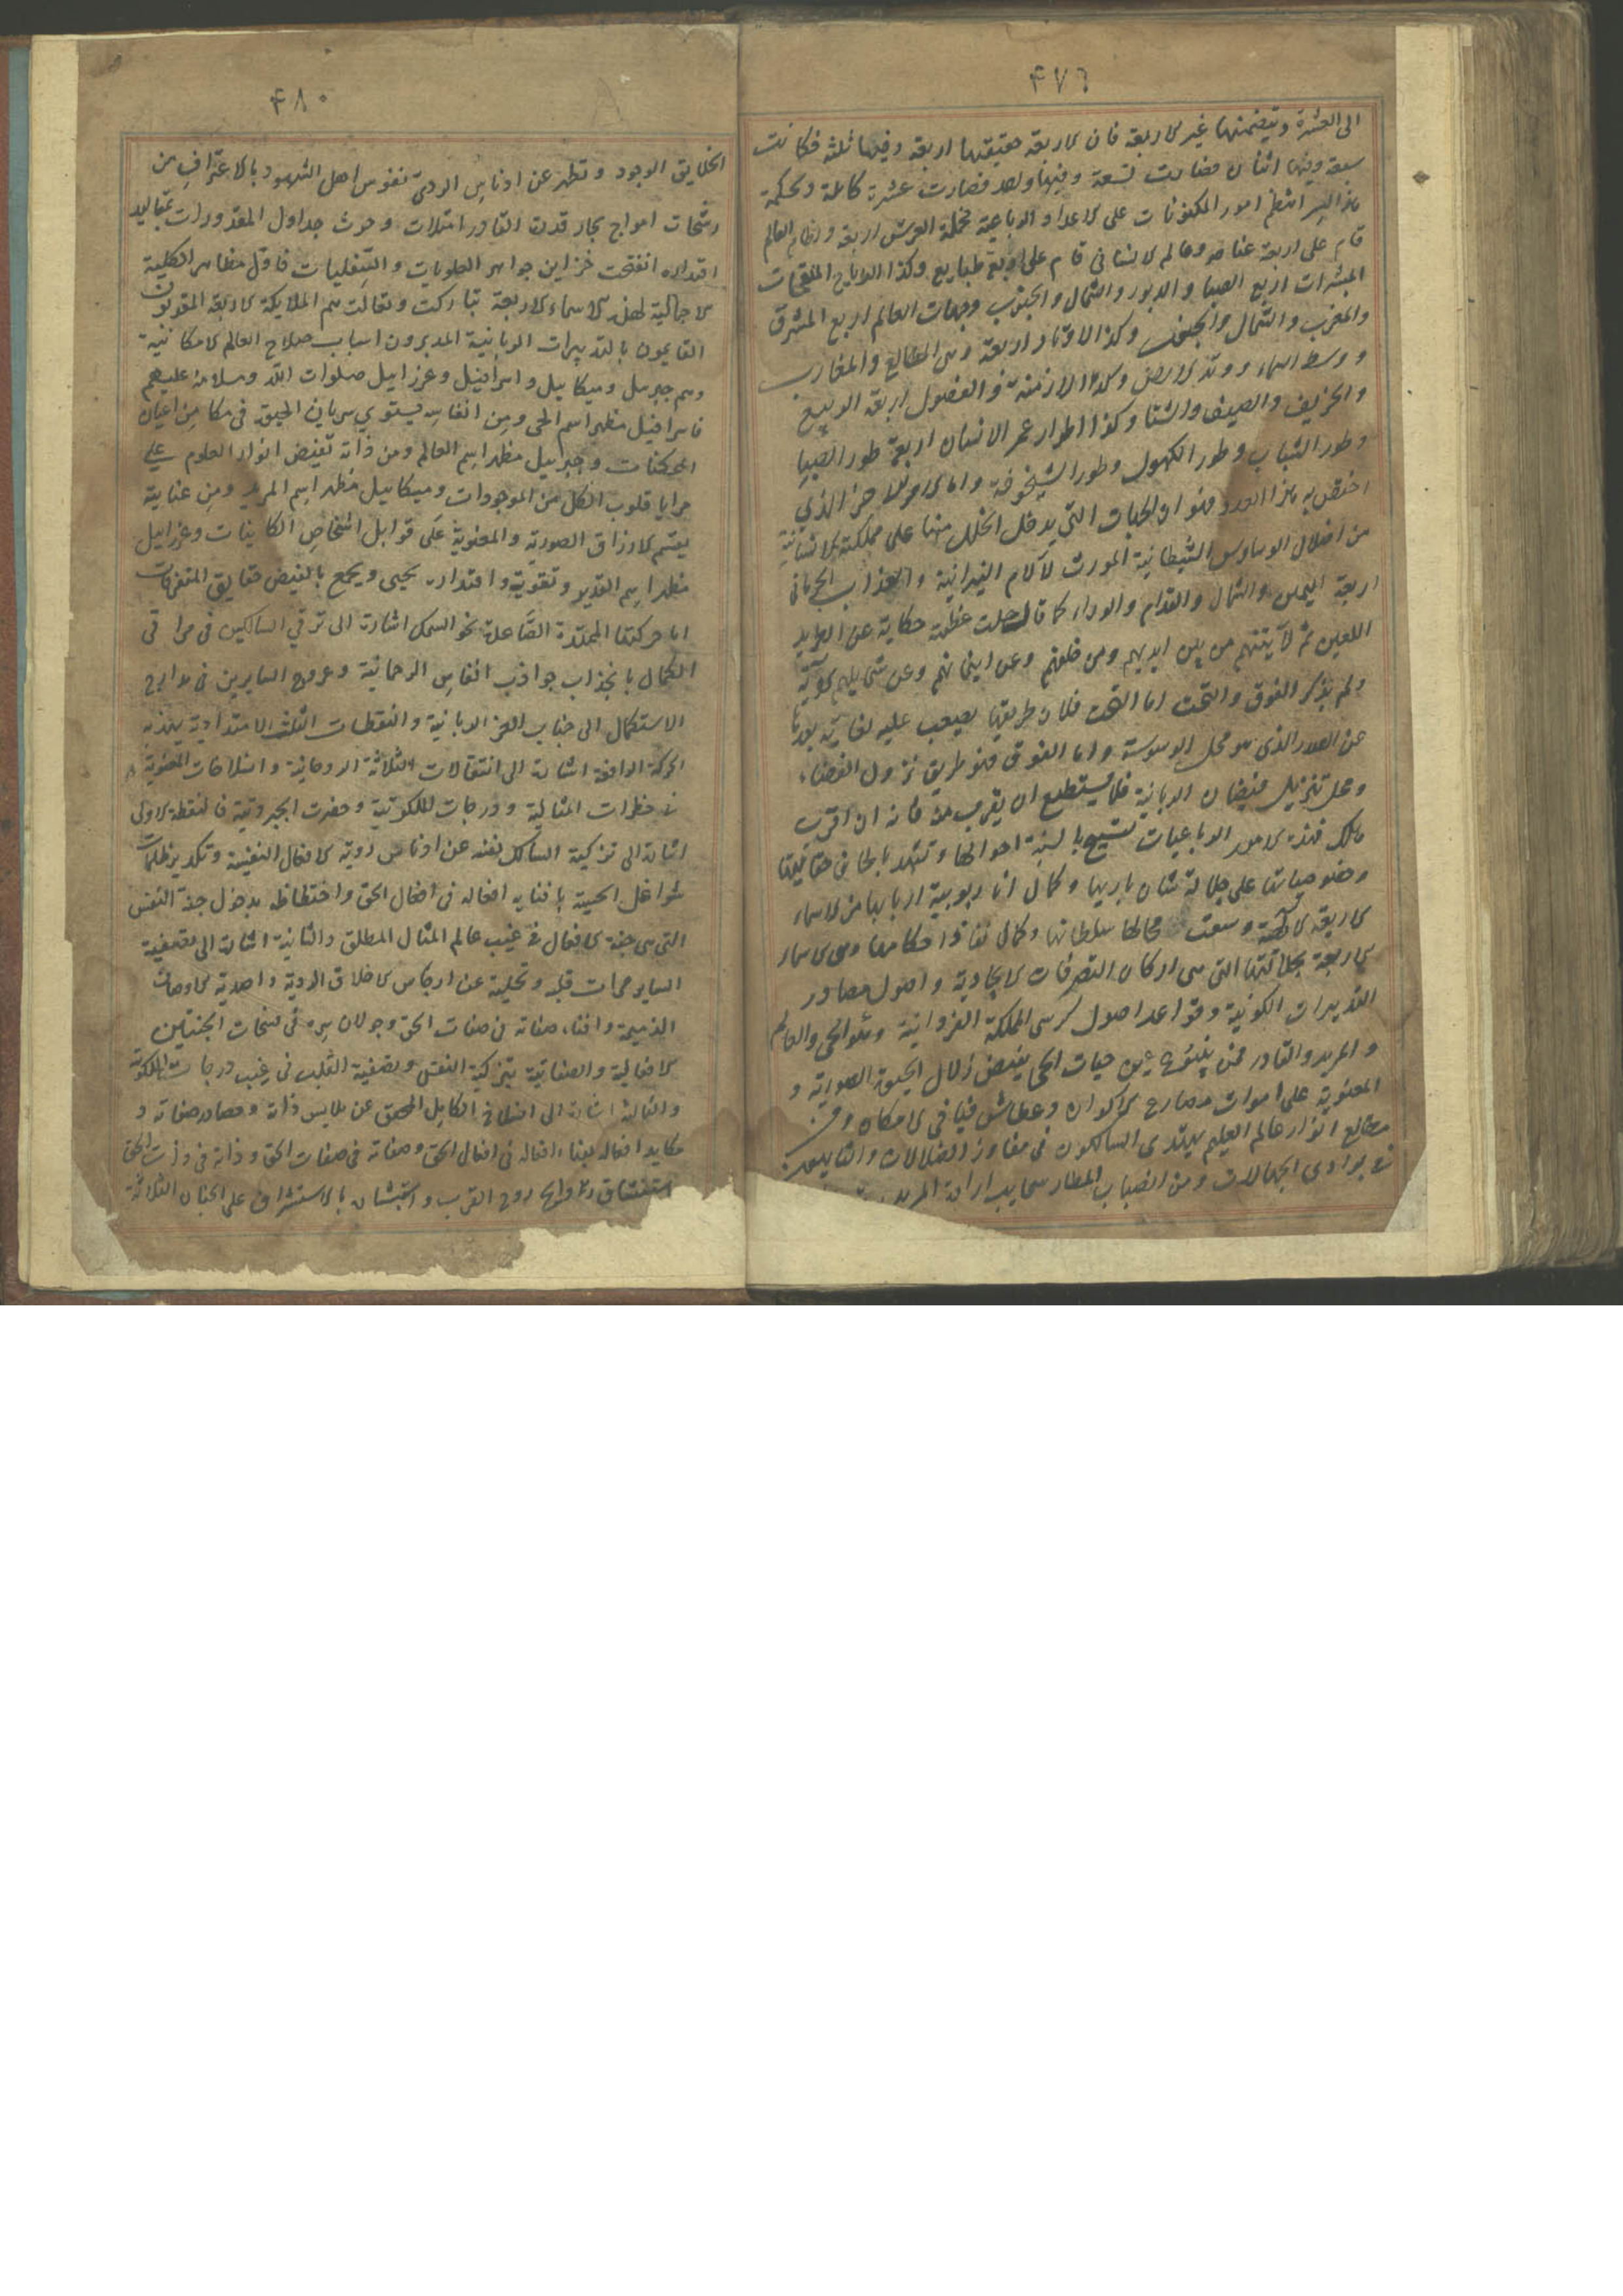 ۴۷٦
الى العشرة ويتضمنها غير الاربعة فان الاربعة حقيقتها اربعة وفيها ثلثة فكانت
سبعة وفيها اثنان فصارت تسعة وفيها واحد فصارت عشرة كاملة ولحكمة
هذا السر انتظم امور المكنونات على الاعداد الرباعية فحملة العرش اربعة ونظام العالم
قام على اربعة عناصر وعالم الانسانى قام على اربع طبايع وكذا الرياح الملقحات
المبشرات اربع الصبا والدبور والشمال والجنوب وجهات العالم اربع المشرق
والمغرب والشمال والجنوب وكذا الاوتاد اربعة وهى المطالع والمغارب
ووسط السماء ووتد الارض وكذا الازمنة والفصول اربعة الربيع
والخريف والصيف والشتا وكذا اطوار عمر الانسان اربعة طور الصبا
وطور الشباب وطور الكهول وطور الشيخوخة واما الامر الاخر الذي
اختص به هذا العدد فهو ان الجهات التي يدخل الخلل منها على مملكة الانسانية
من اضلال الوساوس الشيطانية المورث لآلام النيرانية والعذاب الجرمانى
اربعة اليمين والشمال والقدام والوراء كما قال جلت عظمته حكاية عن المريد
اللعين ثم لآتينهم من بين ايديهم ومن خلفهم وعن ايمانهم وعن شمايلهم الآية
ولم يذكر الفوق والتحت اما التحت فلان طريقها يصعب عليه لغاية بعدها
عن الصدر الذى هو محل الوسوسة واما الفوق فهو طريق نزول القضاء
ومحل تنزيل فيضان الربانية فلا يستطيع ان يقرب منه فانه ان اقرب
هلك فهذه الامور الرباعيات تسبح بالسنة احوالها وتشهد بالحان حقايقها
وخصوصياتها على جلالة شان باريها وكمال آثار ربوبية اربابها من الاسماء
الاربعة الالهية وسعت مجالها سلطانها وكمال نفاذ احكامها وهى الاسماء
الاربعة بجلالتها التى هى اركان التصرفات الايجادية واصول مصادر
التدبيرات الكونية وقواعد اصول كرسى المملكة الفردانية وهو الحى والعالم
والمريد والقادر فمن ينبوع عين حيات الحى يفيض زلال الحيوة الصورية و
المعنوية على اموات مصارع الاكوان وعطاش فيافى الامكان ومن
مطالع انوار عالم العليم يهتدى السالكون فى مفاوز الضلالات والتايهون
فى بوادى الجهالات ومن انصباب امطار سحايب ارادة المريد
۴۸۰
الخلايق الوجود وتطهر عن ادناس الردى نفوس اهل الشهود بالاعتراف من
رشحات امواج بحار قدرة القادر امتلات وحوث جداول المقدورات بمقاليد
اقتداره انفتحت خزاين جواهر العلويات والسفليات فاول مظاهر الكلية
الاجمالية لهذه الاسماء الاربعة تباركت وتعالت هم الملايكة الاربعة المقربون
القايمون بالتدبيرات الربانية المدبرون اسباب صلاح العالم الامكانية
وهم جبريل وميكاييل واسرافيل وعزراييل صلوات الله وسلامه عليهم
فاسرافيل مظهر اسم الحى ومن انفاسه يستوي سريان الحيوة فى مكامن اعيان
الممكنات وجبرييل مظهر اسم العالم ومن ذاته تفيض انوار العلوم على
مرايا قلوب الكل من الموجودات وميكاييل مظهر اسم المريد ومن عناية
يعتم الارزاق الصورية والمعنوية على قوابل اشخاص الكاينات وعزراييل
مظهر اسم القدير وتقويته واقتداره يحيى ويجمع بالفيض حقايق المتفرقات
اما حركتها الممتدة الصاعدة نحو السمك اشارة الى ترقي السالكين فى مراقى
الكمال بانجذاب جواذب انفاس الرحمانية وعروج السايرين فى مدارج
الاستكمال الى جناب العز الربانية والنقطات الثلث الامتدادية بهذه
الحركة الرافعة اشارة الى انتقالات الثلاثة الروحانية وانسلاخات المعنوية
فى حظرات المثالية ودرجات الملكوتية وحضرت الجبروتية فالنقطة الاولى
اشارة الى تزكية السالك نفسه عن ادناس رذية الافعال النفسية وتكدير ظلمات
شواغل الحسية بافنايه افعاله فى افعال الحق واحتظاظه بدخول جنة النفس
التى هى جنة الافعال فى غيب عالم المثال المطلق والثانية اشارة الى تصفية
الساير مرات قلبه وتخلية عن ارجاس الاخلاق الردية واصدية الاوصاف
الذميمة وافناء صفاته فى صفات الحق وجولان سره فى فسحات الجنتين
الافعالية والصفاتية بتزكية النفس وتصفية القلب فى غيب درجات الملكوتية
والثالثة اشارة الى انسلاخ الكامل المحقق عن ملابس ذاته ومصادر صفاته و
مكايد افعاله بفناء افعاله فى افعال الحق وصفاته فى صفات الحق وذاته فى ذات الحق
استنشاق روايح روح القرب واستبشاره بالاستشراف على الجنان الثلاثة